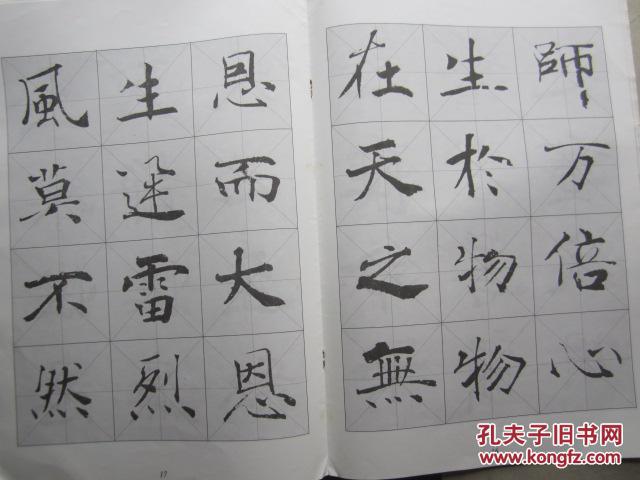 師万倍心
生於物物
在天之無
恩而大恩
生迅雷烈
風莫不然
17
孔夫子旧书网
www.kongfz.com